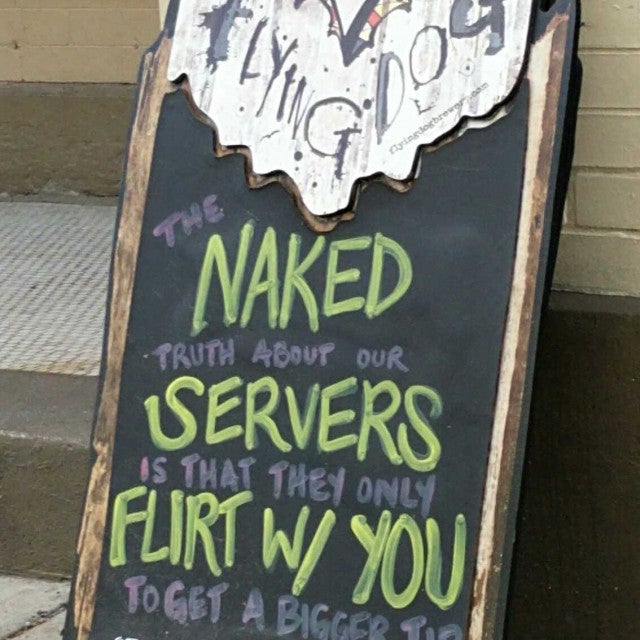 FLYING DOG
flyingdogbrewery.com
THE
NAKED
TRUTH ABOUT OUR
SERVERS
IS THAT THEY ONLY
FLIRT W/ YOU
TO GET A BIGGER TIP